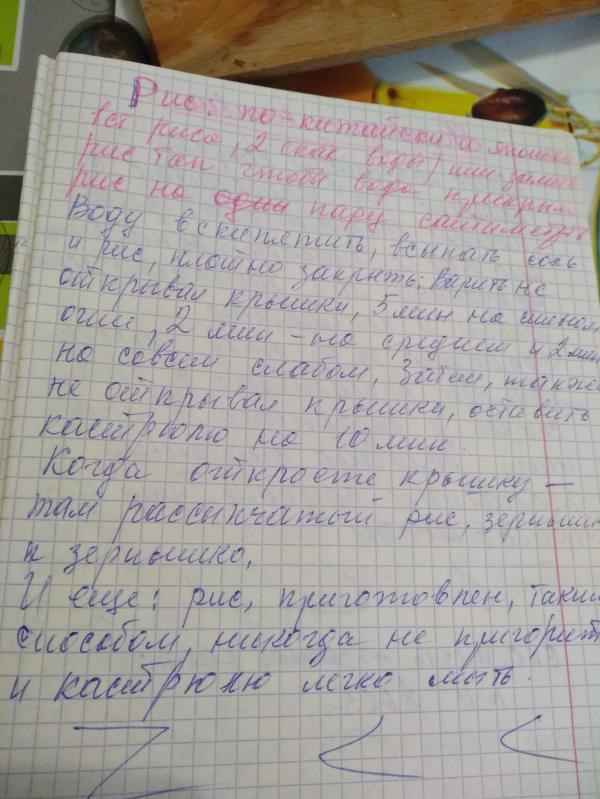 Рис: по-китайски и японски
вст риса, 2 скак воды, или залить
рис так чтобы вода прикрыл
рис на пару сантиметров
Воду вскипятить, всыпать соль
и рис, плотно закрыть. Варить не
открывая крышки, 5 мин на сильном
огни, 2 мин - на среднем и 2 мин
на совсем слабом, Затем, также
не открывая крышки, оставить
кастрюлю на 10 мин.
Когда откроете крышку —
там рассыпчатый рис, зернышк
к зернышко,
И еще: рис, приготовлен, таким
способом, никогда не пригорит
и кастрюлю легко мыть.